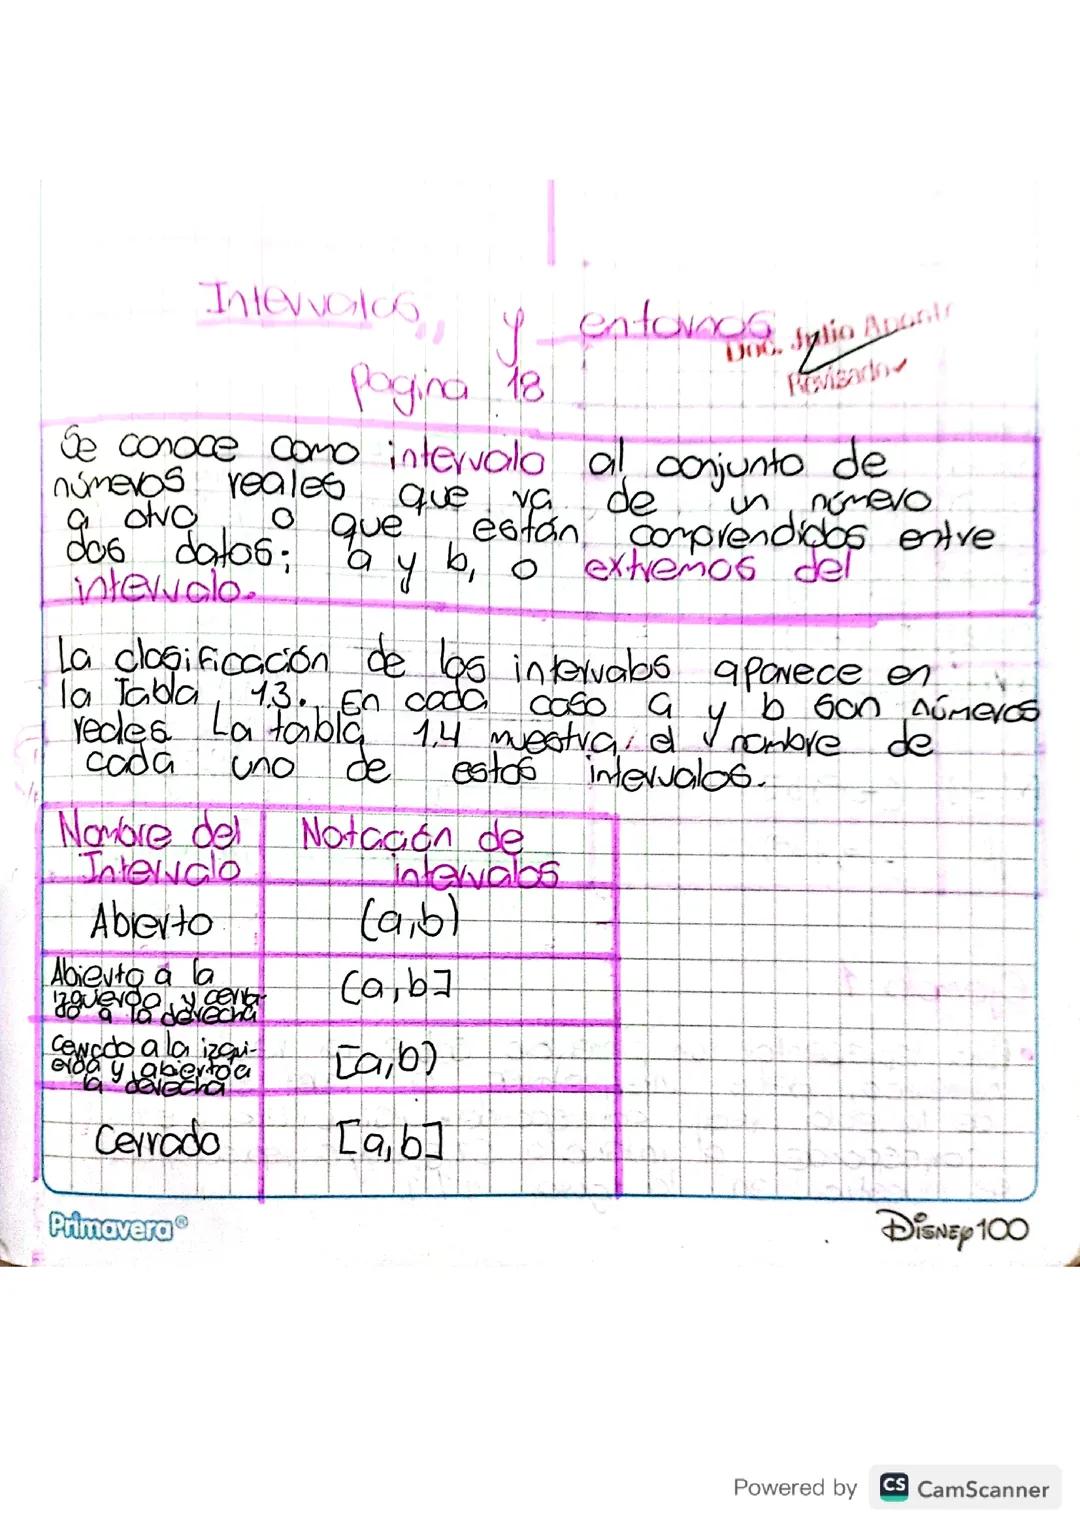 Intervalos y entornos
Doc. Julio
Revisado
pagina 18
Se conoce como intervalo al conjunto de
números reales que va de un número
a otro o que están comprendidos entre
dos datos; a y b, o extremos del
intervalo.
La clasificación de los intervalos aparece en
la Tabla 1.3. En cada caso a y b son números
reales La tabla 1.4 muestra el nombre de
cada uno de estos intervalos.
Nombre del Notación de
Intervalo intervalos
Abierto (a,b)
Abierto a la
izquierda y cerra-
do a la derecha
(a,b]
Cerrado a la izqui-
erda y abierto a
la derecha
[a,b)
Cerrado [a,b]
Primavera®
DISNEY100
Powered by CS CamScanner